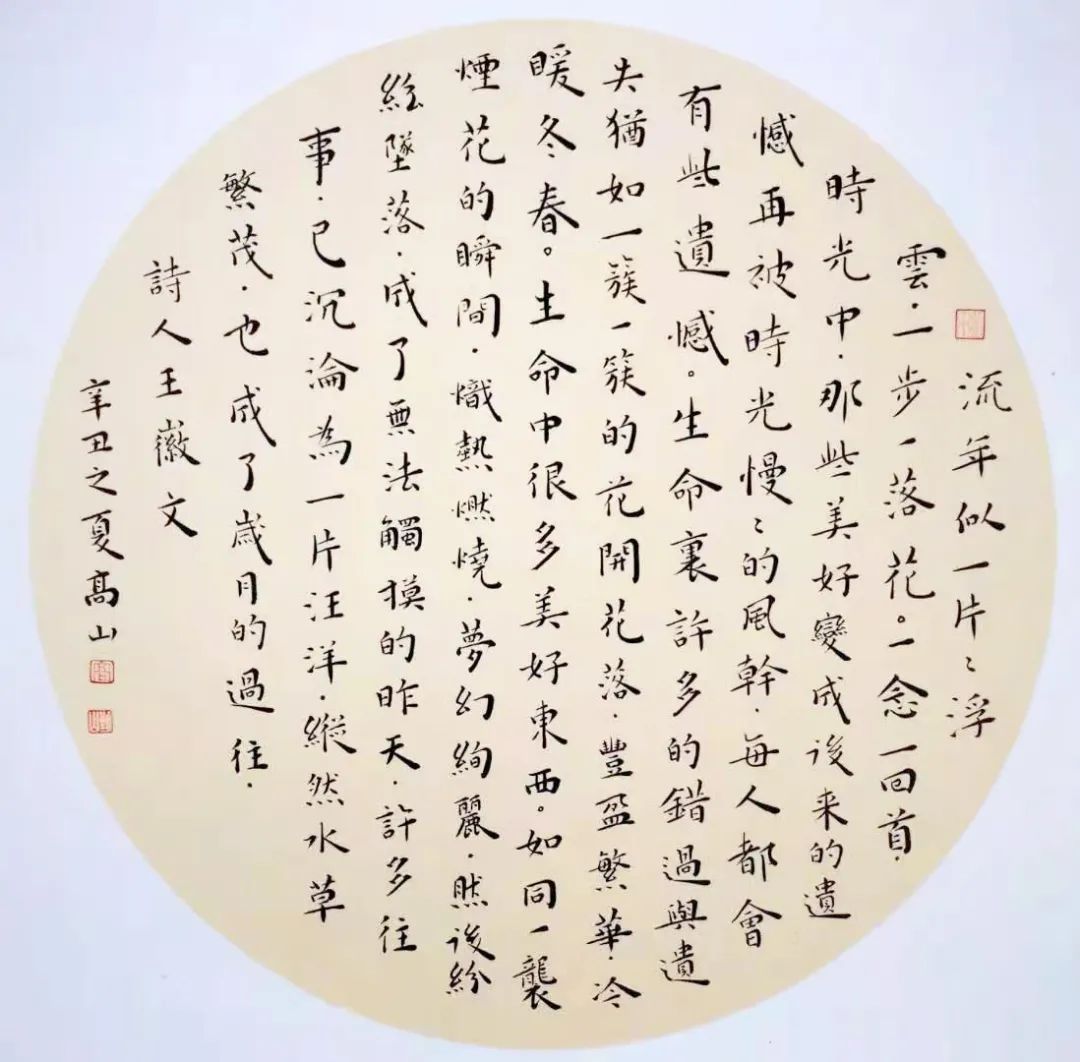 流年似一片〻浮
雲．一步一落花。一念一回首．
時光中．那些美好變成後来的遺
憾再被時光慢〻的風幹．每人都會
有些遺憾。生命裏許多的錯過與遺
失猶如一簇一簇的花開花落．豐盈繁華．冷
暖冬春。生命中很多美好東西。如同一襲
煙花的瞬間．熾熱燃燒．夢幻絢麗．然後紛
紜墜落．成了無法觸摸的昨天．許多往
事．已沉淪為一片汪洋．縱然水草
繁茂．也成了歲月的過往．
詩人王徽文
辛丑之夏高山